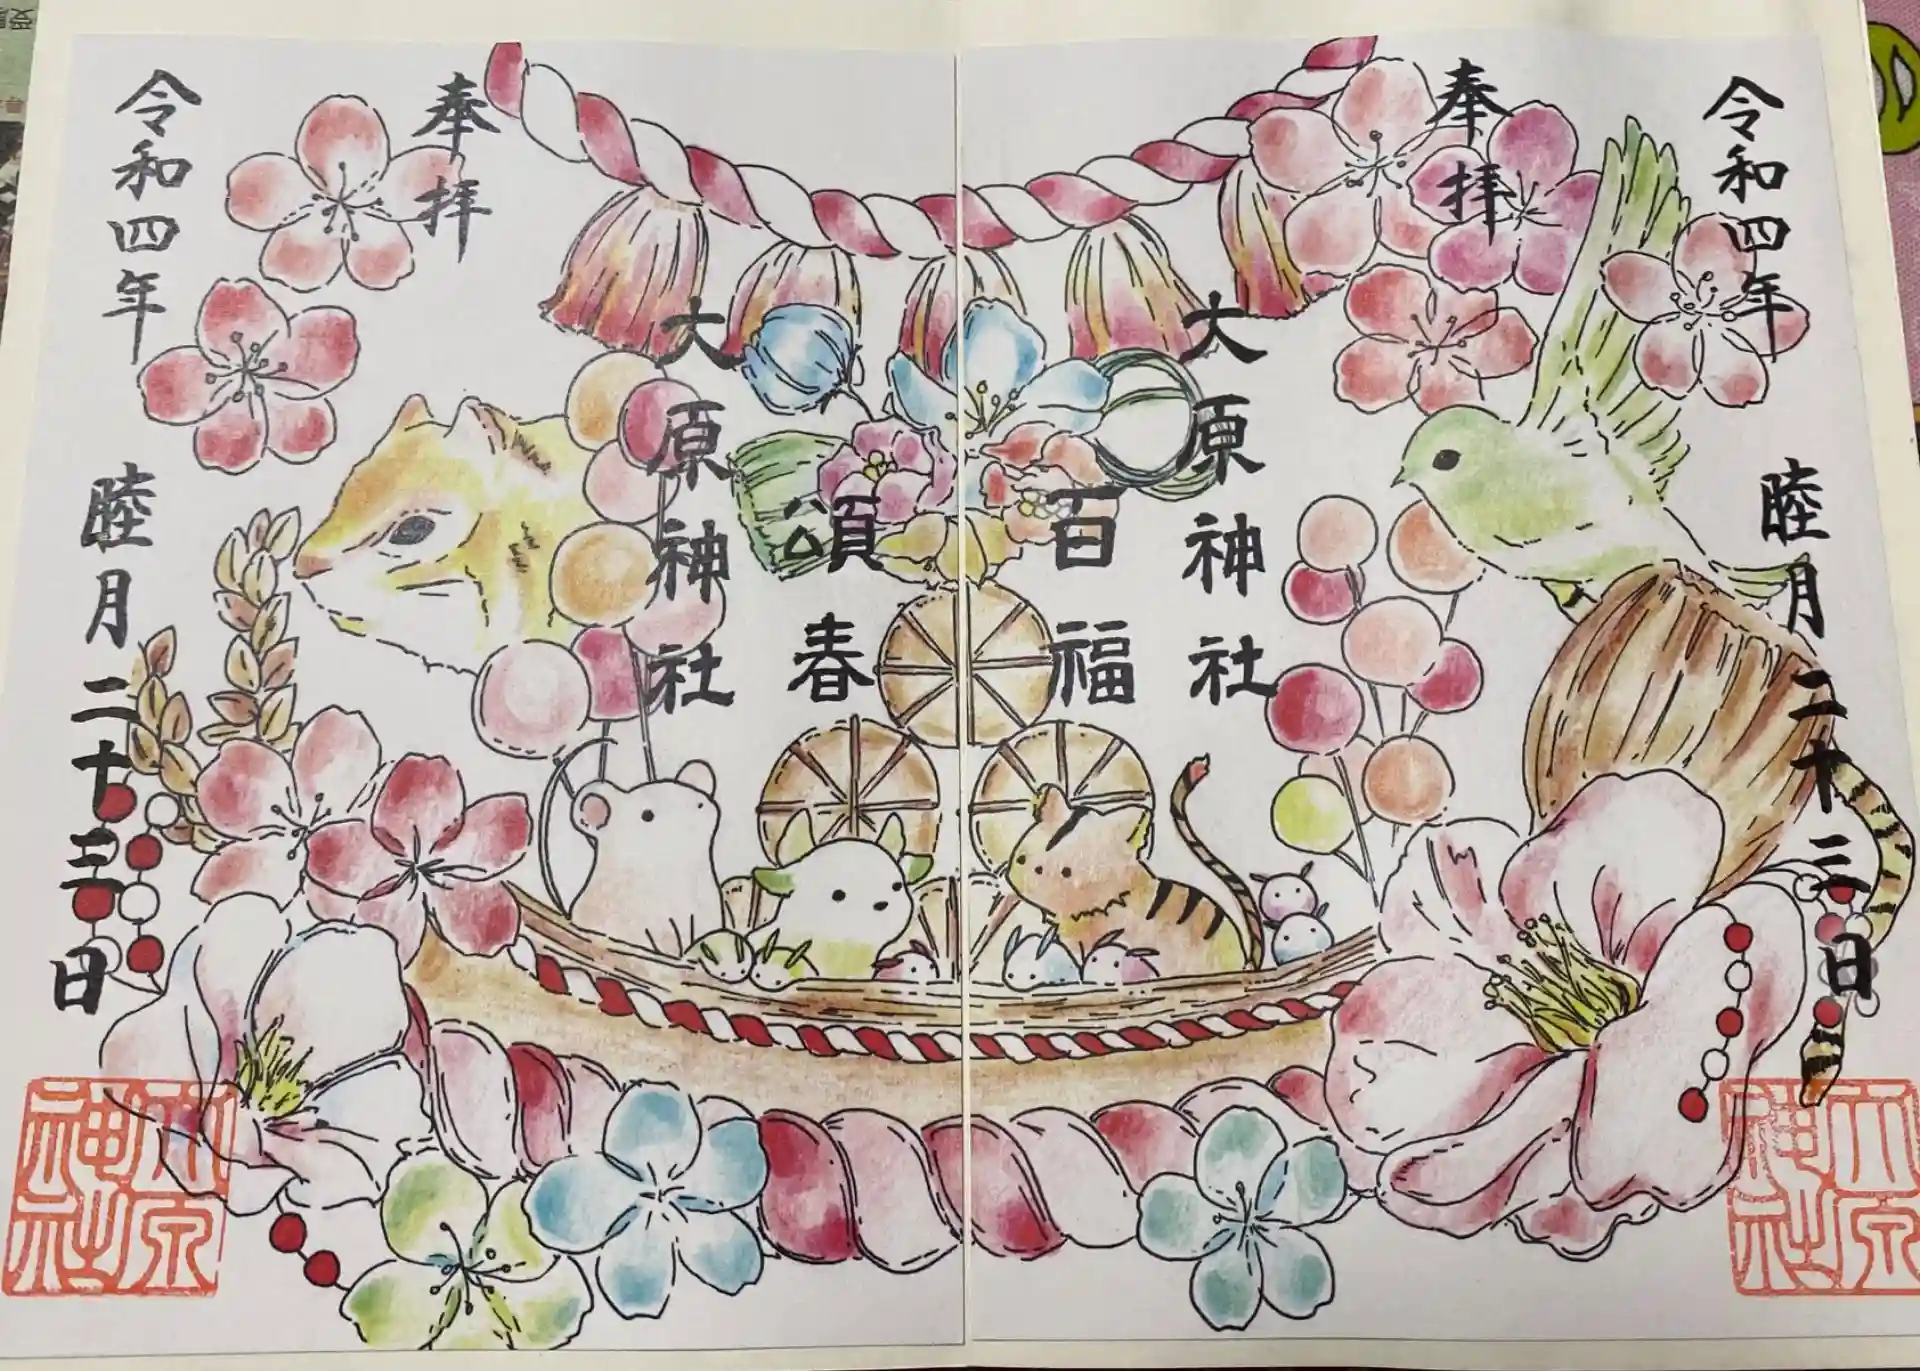 奉拝
大原神社
百福
令和四年
睦月二十三日
大原神社
奉拝
大原神社
頌春
令和四年
睦月二十三日
大原神社